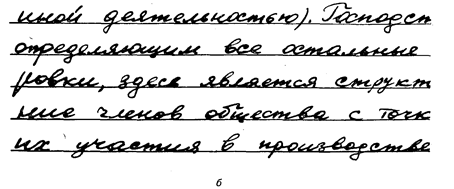 иной деятельностью). Господст
определяющим все остальные
ровки, здесь является структ
ние членов общества с точк
их участия в производстве
б